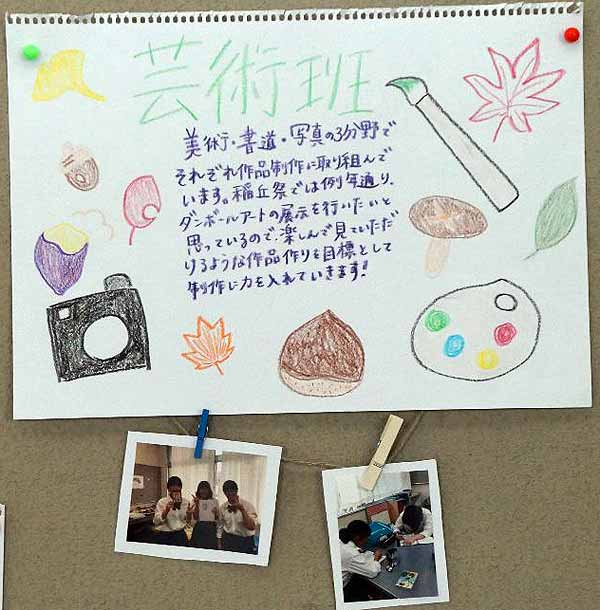 芸術班
美術・書道・写真の3分野で
それぞれ作品制作に取り組んで
います。稲丘祭では例年通り、
ダンボールアートの展示を行いたいと
思っているので、楽しんで見ていただ
けるような作品作りを目標として
制作に力を入れていきます!